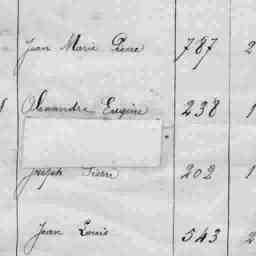 Jean Marie Pierre 787 2
Alexandre Eugène 238 1
Joseph Pierre 202 1
Jean Louis 543 2